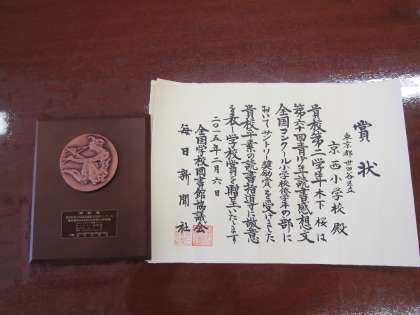 賞状
東京都世田谷区立
京西小学校 殿
貴校第二学年木下 桜は
第六十回青少年読書感想文
全国コンクール小学校低学年の部に
おいてサントリー奨励賞を受けました
貴校平素の読書指導に敬意
を表し学校賞を贈呈いたします
二〇一五年二月六日
全国学校図書館協議会
毎日新聞社